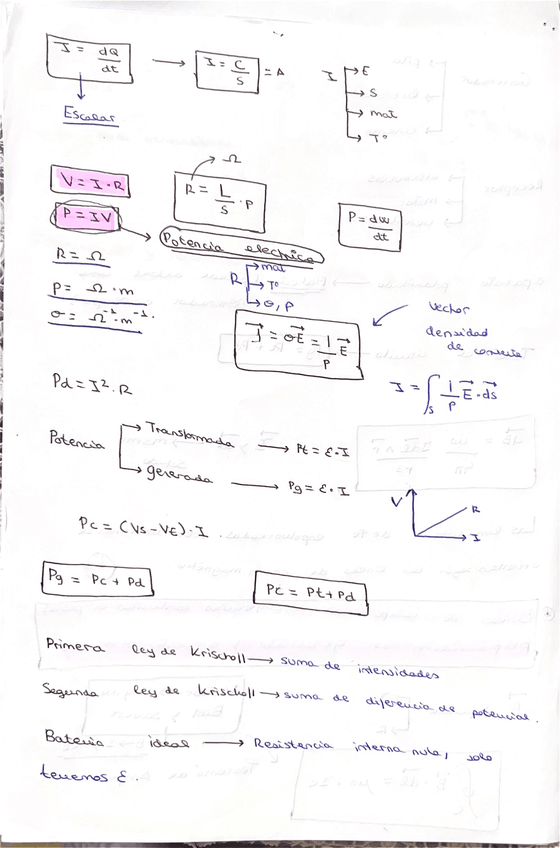 I = dQ/dt → I = C/S = A
I → E
→ S
→ mat
→ Tº
Escalar
→ Ω
V = I · R
R = L/S · ρ
P = IV
P = dW/dt
Potencia electrica
R = Ω
R → mat
→ Tº
→ σ, ρ
ρ = Ω · m
σ = Ω⁻¹ · m⁻¹.
J⃗ = σE⃗ = 1/ρ E⃗
Vector
densidad
de corriente
I = ∫s 1/ρ E⃗ · ds⃗
Pd = I² · R
Potencia → Transformada → Pt = ε · I
→ generada → Pg = ε · I
V R
I
Pc = (Vs - VE) · I.
Pg = Pc + Pd
Pc = Pt + Pd
Primera ley de Krischoll → suma de intensidades
Segunda ley de Krischoll → suma de diferencia de potencial.
Bateria ideal → Resistencia interna nula, solo
tenemos ε.